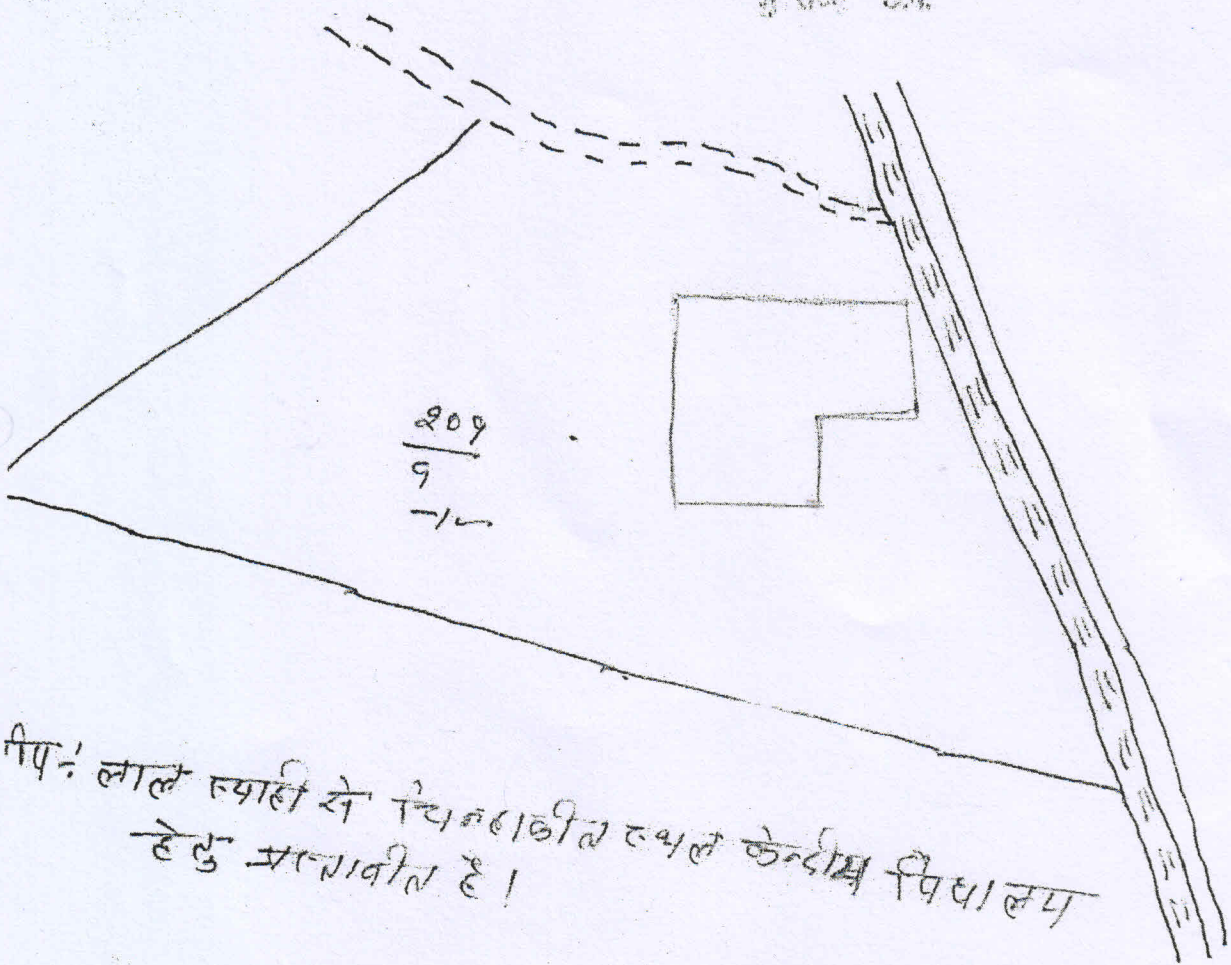 २०१
९
टीप:- लाल स्याही से चिन्हाकीत स्थल केन्द्रीय विद्यालय
हेतु प्रस्तावीत है।